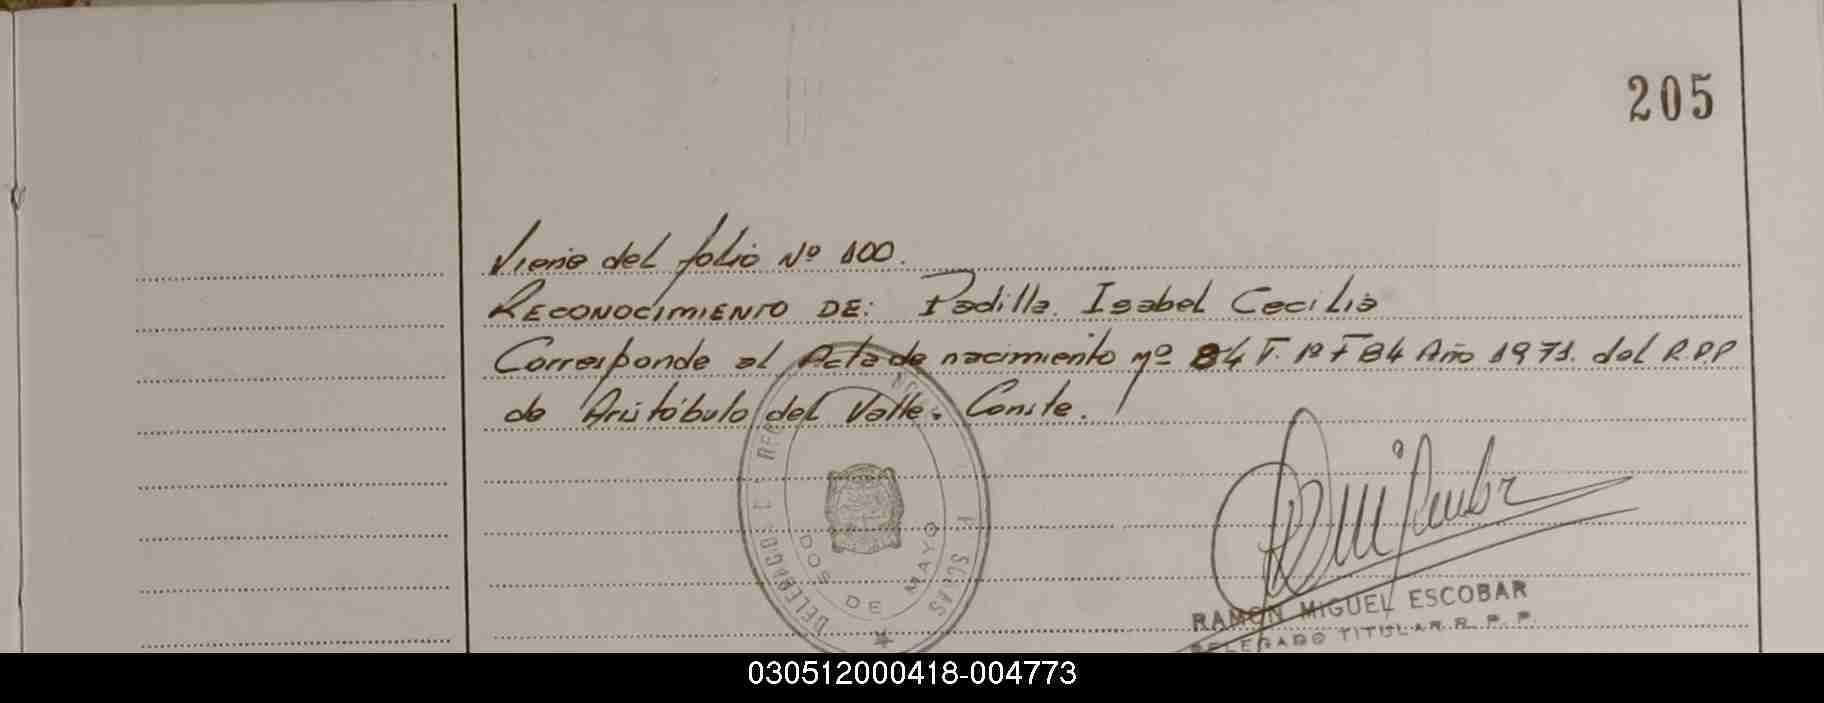 205
Viene del folio Nº 100.
RECONOCIMIENTO DE: Padilla Isabel Cecilia
Corresponde al Acta de nacimiento nº 84 T. 1º F 84 Año 1971. del R.P.P
de Aristóbulo del Valle. Conste.
DOS DE MAYO
RAMON MIGUEL ESCOBAR
DELEGADO TITULAR R. P. P.
030512000418-004773